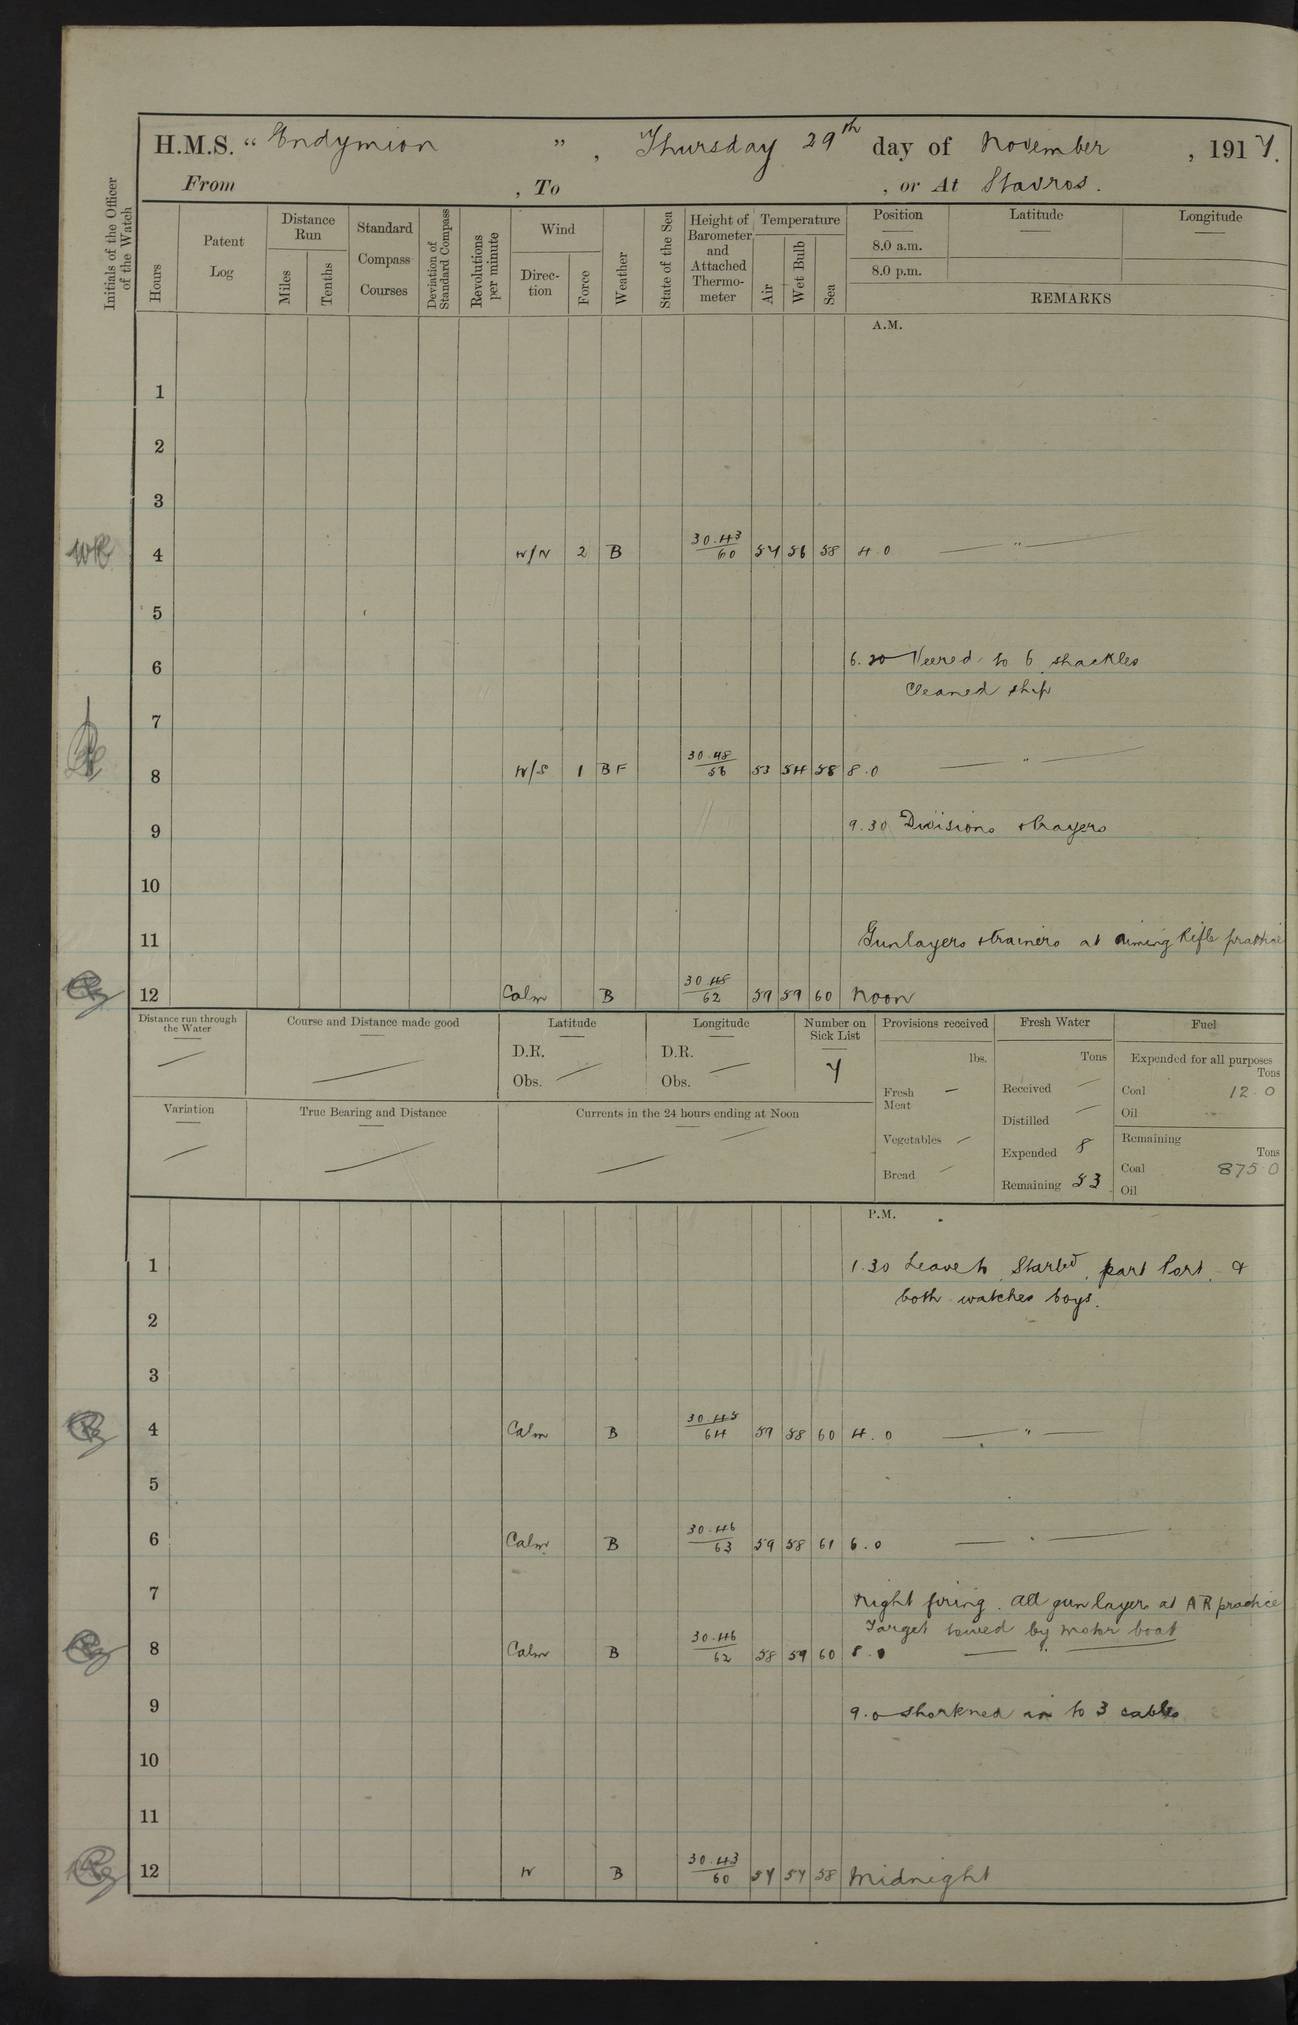 H.M.S. “ Endymion ” , Thursday 29th day of November , 1917.
From , To , or At Stavros.
Initials of the Officer of the Watch
Hours
Patent Log
Distance Run
Miles
Tenths
Standard Compass Courses
Deviation of Standard Compass
Revolutions per minute
Wind
Direc-tion
Force
Weather
State of the Sea
Height of Barometer and Attached Thermo-meter
Temperature
Air
Wet Bulb
Sea
Position Latitude Longitude
8.0 a.m.
8.0 p.m.
REMARKS
A.M.
1
2
3
4 N/W 2 B 30.43/60 57 56 58 4.0 — " —
5
6 6.20 Veered to 6 shackles
Cleaned ship
7
8 W/S 1 BF 30.48/56 53 54 58 8.0 — " —
9 9.30 Divisions & Prayers
10
11 Gunlayers & trainers at aiming Rifle practice
12 Calm B 30.48/62 59 59 60 Noon
Distance run through the Water
Course and Distance made good
Latitude
D.R.
Obs.
Longitude
D.R.
Obs.
Number on Sick List
7
Provisions received
lbs.
Fresh Meat —
Vegetables —
Bread —
Fresh Water
Tons
Received —
Distilled —
Expended 8
Remaining 53
Fuel
Expended for all purposes
Tons
Coal 12.0
Oil
Remaining
Tons
Coal 875.0
Oil
Variation
True Bearing and Distance
Currents in the 24 hours ending at Noon
P.M.
1 1.30 Leave to Starbd, part Port, &
both watches boys.
2
3
4 Calm B 30.45/64 59 58 60 4.0 — " —
5
6 Calm B 30.46/63 59 58 61 6.0 — " —
7 Night firing. All gunlayers at AR practice
Target towed by motor boat
8 Calm B 30.46/62 58 59 60 8.0 — " —
9 9.0 Shortened in to 3 cables
10
11
12 N B 30.43/60 57 57 58 Midnight